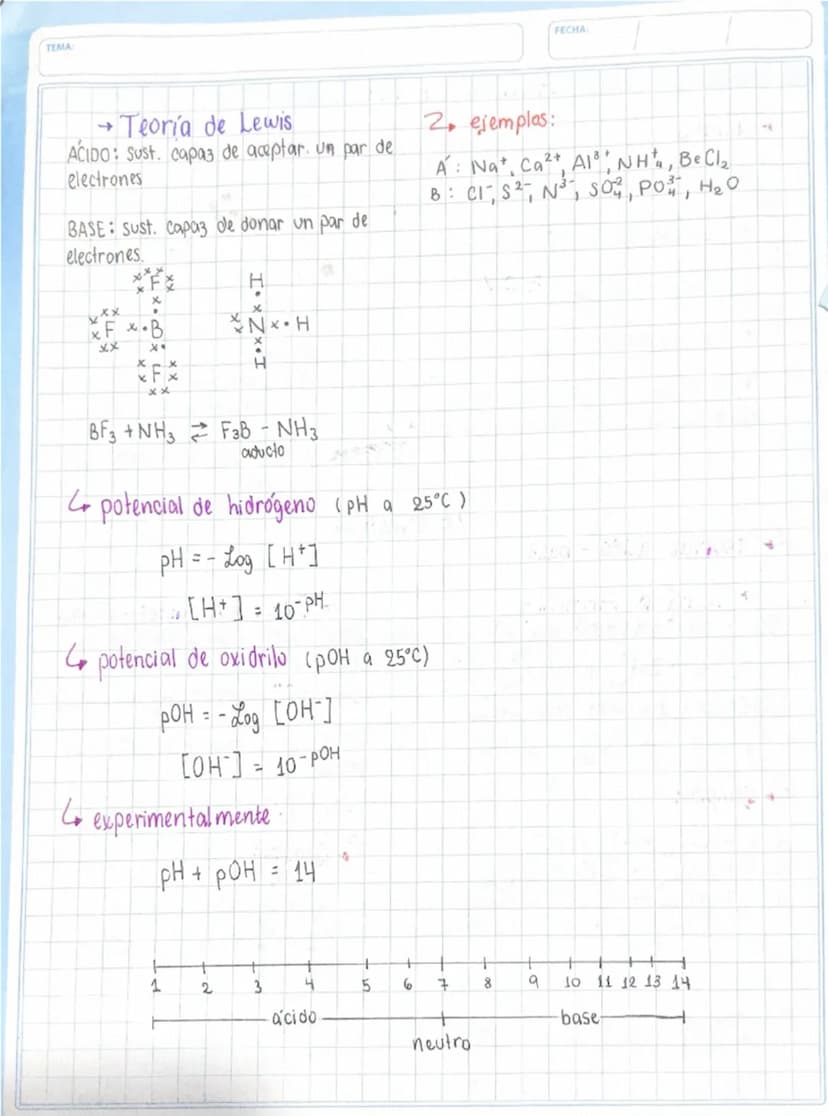 TEMA:
FECHA:
→ Teoría de Lewis
ÁCIDO: Sust. capaz de aceptar un par de
electrones
BASE: Sust. capaz de donar un par de
electrones.
F
F B
F
H
N H
H
BF₃ + NH₃ ⇄ F₃B - NH₃
aducto
2, ejemplos:
A: Na⁺, Ca²⁺, Al³⁺, NH₄⁺, BeCl₂
B: Cl⁻, S²⁻, N³⁻, SO₄²⁻, PO₄³⁻, H₂O
↳ potencial de hidrógeno (pH a 25°C)
pH = - Log [H⁺]
[H+] = 10⁻ᵖᴴ
↳ potencial de oxidrilo (pOH a 25°C)
pOH = - Log [OH⁻]
[OH⁻] = 10⁻ᵖᴼᴴ
↳ experimentalmente
pH + pOH = 14
1 2 3 4 5 6 7 8 9 10 11 12 13 14
ácido base
neutro